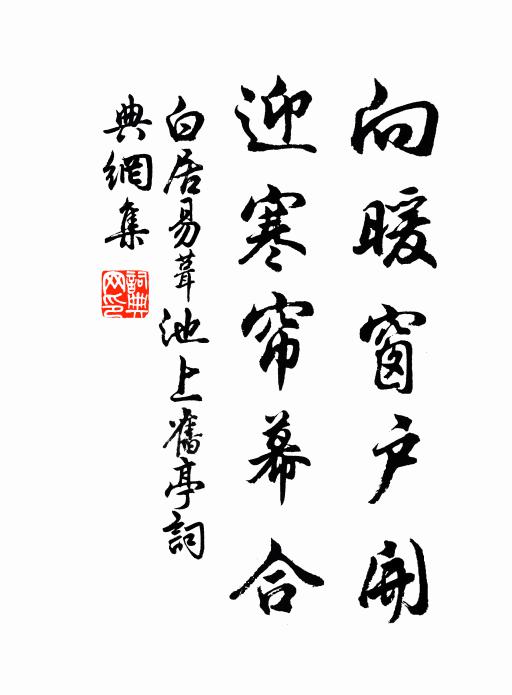 向暖窗户開
迎寒帘幕合
白居易葺池上舊亭詞
典網集
詞典
网印